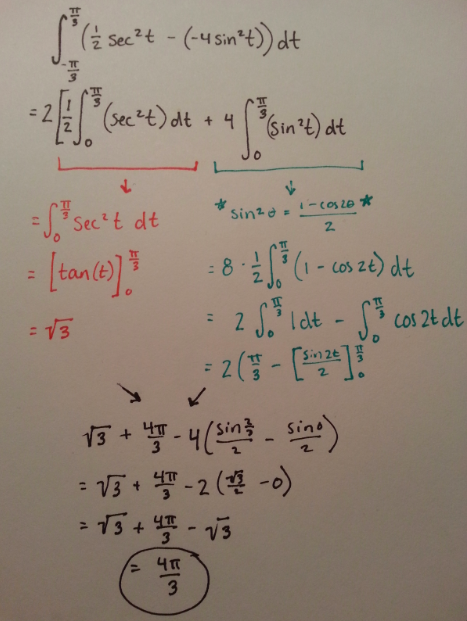 ∫_{-π/3}^{π/3} (1/2 sec²t - (-4sin²t)) dt
= 2[1/2 ∫_0^{π/3} (sec²t) dt + 4 ∫_0^{π/3} (sin²t) dt
= ∫_0^{π/3} sec²t dt
= [tan(t)]_0^{π/3}
= √3
* sin²θ = (1-cos2θ)/2 *
= 8 · 1/2 ∫_0^{π/3} (1 - cos2t) dt
= 2 ∫_0^{π/3} 1dt - ∫_0^{π/3} cos2t dt
= 2(π/3 - [sin2t/2]_0^{π/3}
√3 + 4π/3 - 4(sin 2/3 /2 - sin0/2)
= √3 + 4π/3 - 2(√3/2 - 0)
= √3 + 4π/3 - √3
= 4π/3